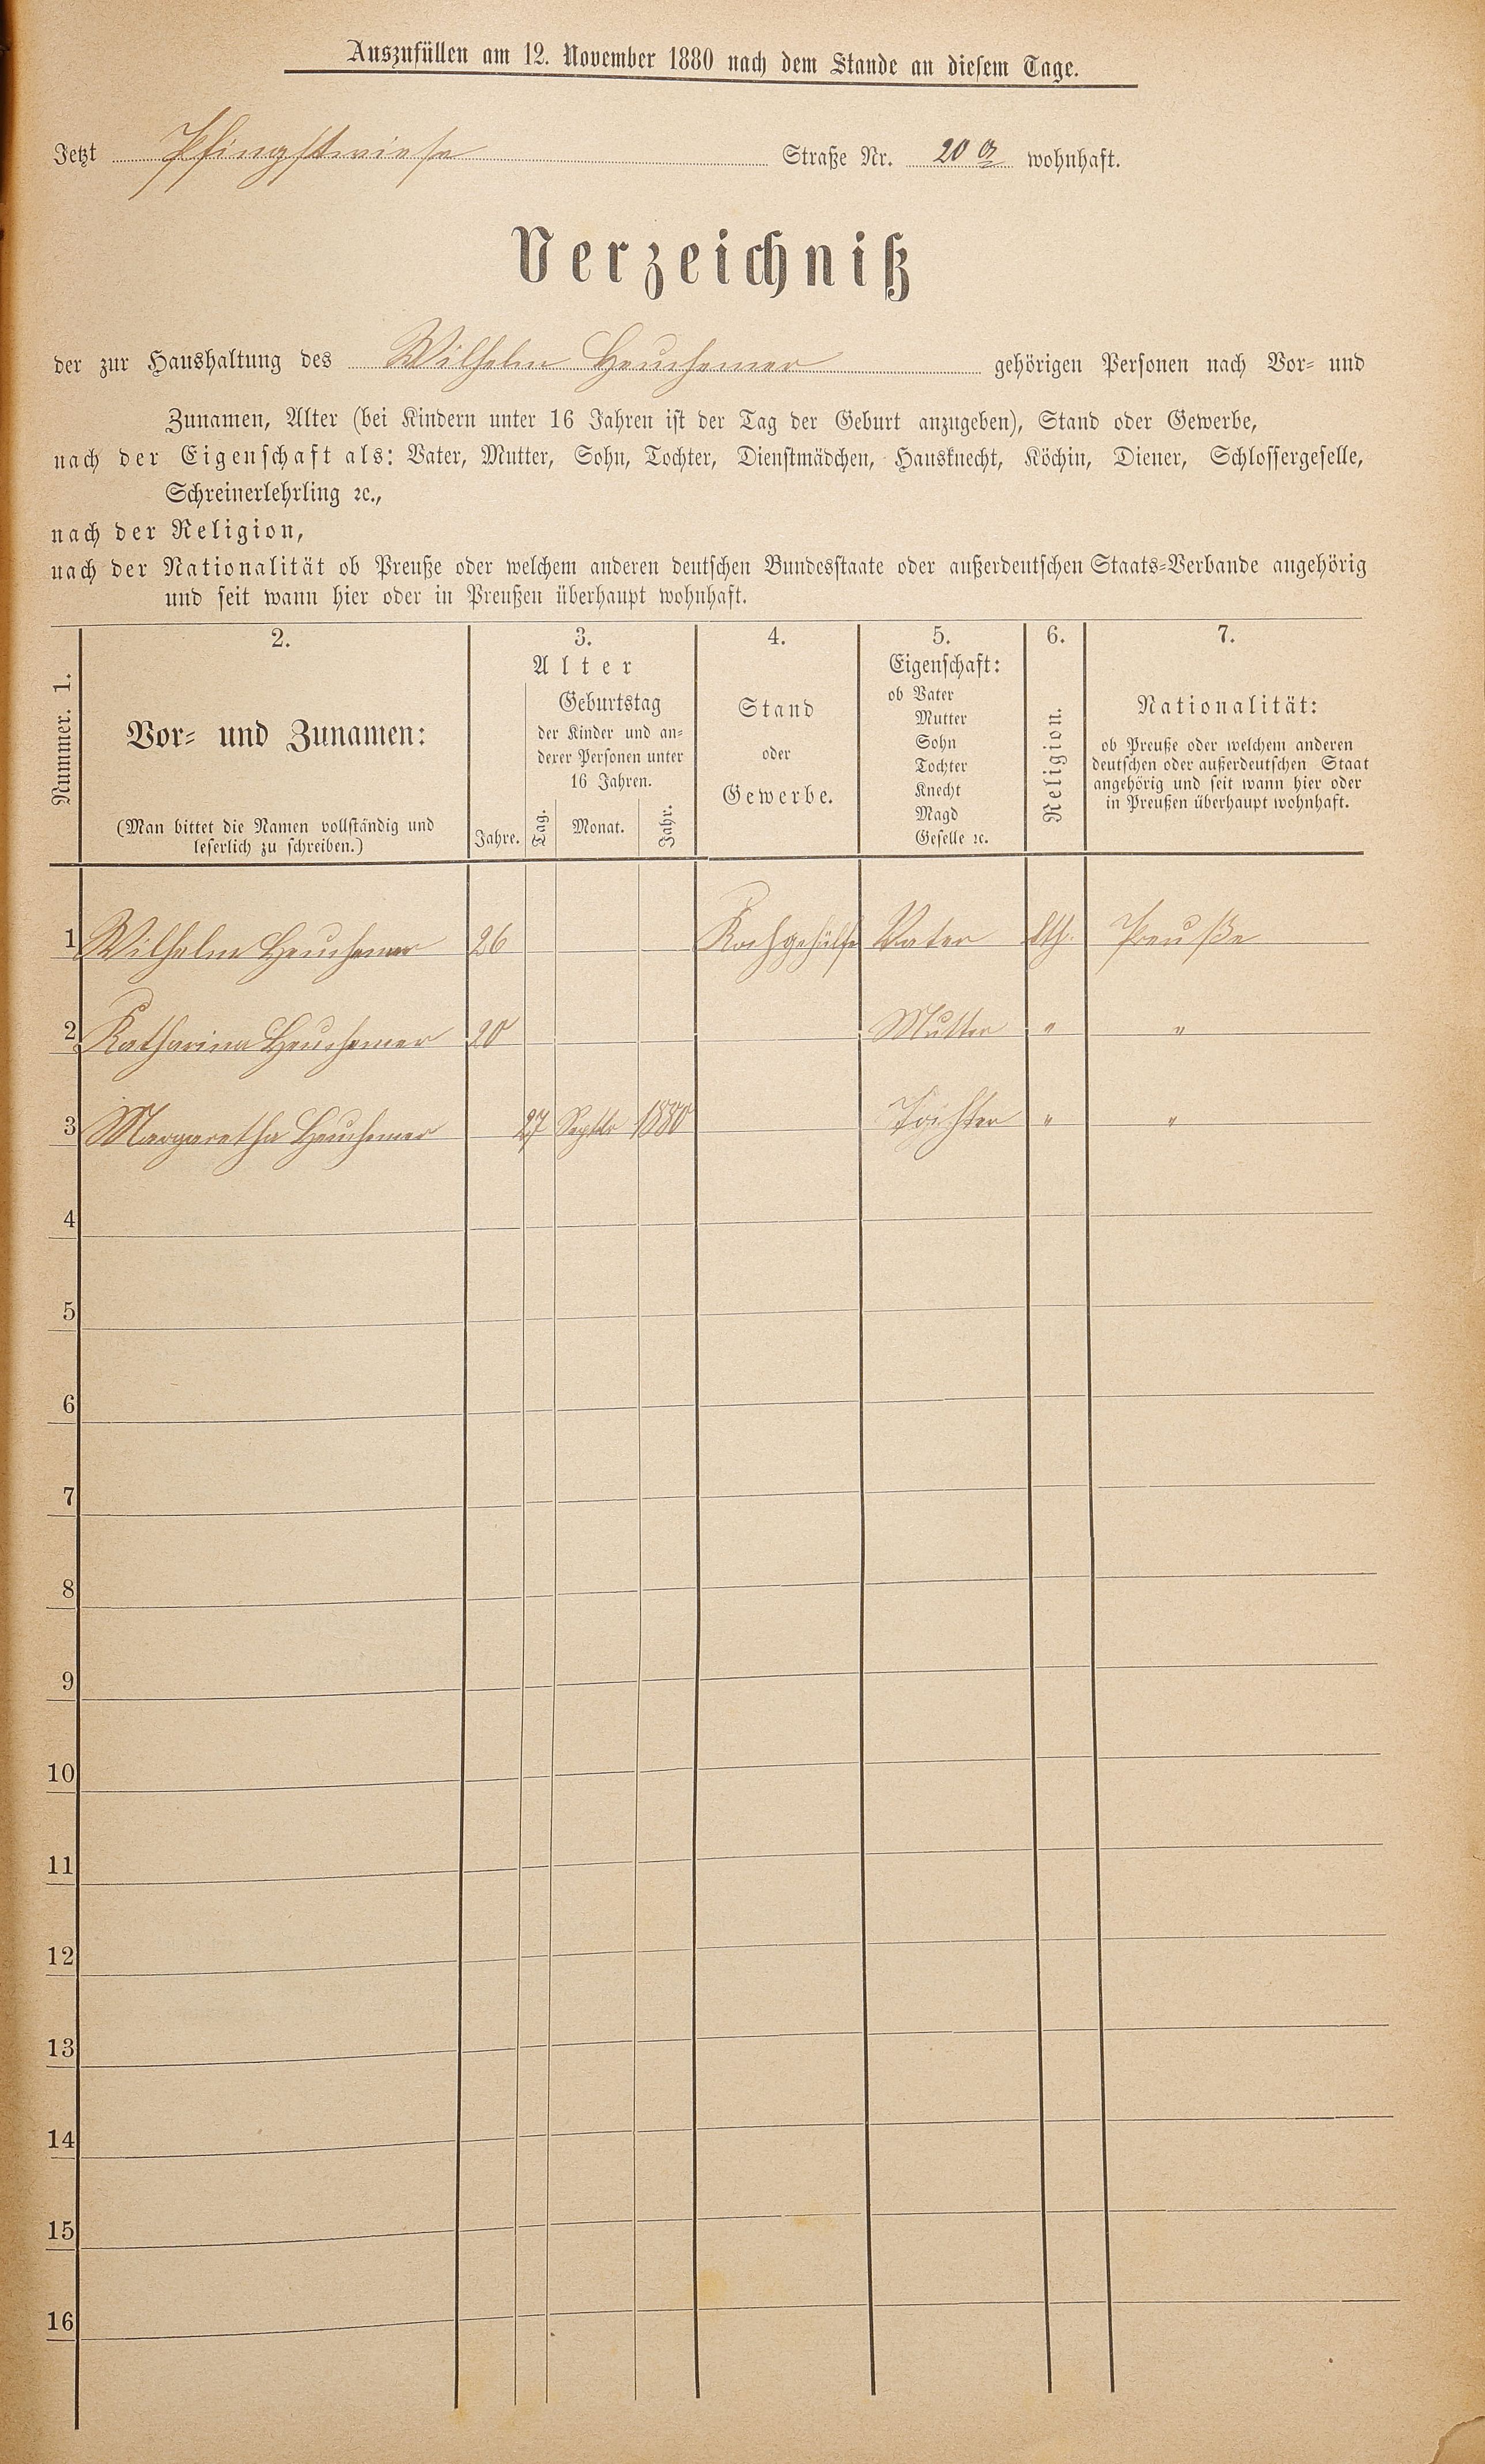 Auszufüllen am 12. November 1880 nach dem Stande an diesem Tage.
Jetzt Pfingstwiese Straße Nr. 20 a wohnhaft.
Verzeichniß
der zur Haushaltung des Wilhelm Heuchemer gehörigen Personen nach Vor- und
Zunamen, Alter (bei Kindern unter 16 Jahren ist der Tag der Geburt anzugeben), Stand oder Gewerbe,
nach der Eigenschaft als: Vater, Mutter, Sohn, Tochter, Dienstmädchen, Hausknecht, Köchin, Diener, Schlossergeselle,
Schreinerlehrling ꝛc.,
nach der Religion,
nach der Nationalität ob Preuße oder welchem anderen deutschen Bundesstaate oder außerdeutschen Staats-Verbande angehörig
und seit wann hier oder in Preußen überhaupt wohnhaft.
Nummer. 1.
2.
Vor- und Zunamen:
(Man bittet die Namen vollständig und
leserlich zu schreiben.)
3.
Alter
Jahre.
Geburtstag
der Kinder und an-
derer Personen unter
16 Jahren.
Tag. Monat. Jahr.
4.
Stand
oder
Gewerbe.
5.
Eigenschaft:
ob Vater
Mutter
Sohn
Tochter
Knecht
Magd
Geselle ꝛc.
6.
Religion.
7.
Nationalität:
ob Preuße oder welchem anderen
deutschen oder außerdeutschen Staat
angehörig und seit wann hier oder
in Preußen überhaupt wohnhaft.
1 Wilhelm Heuchemer 26 Kochgehülfe Vater kth. Preuße
2 Katharina Heuchemer 20 Mutter " "
3 Margaretha Heuchemer 27 Septbr 1880 Tochter " "
4
5
6
7
8
9
10
11
12
13
14
15
16